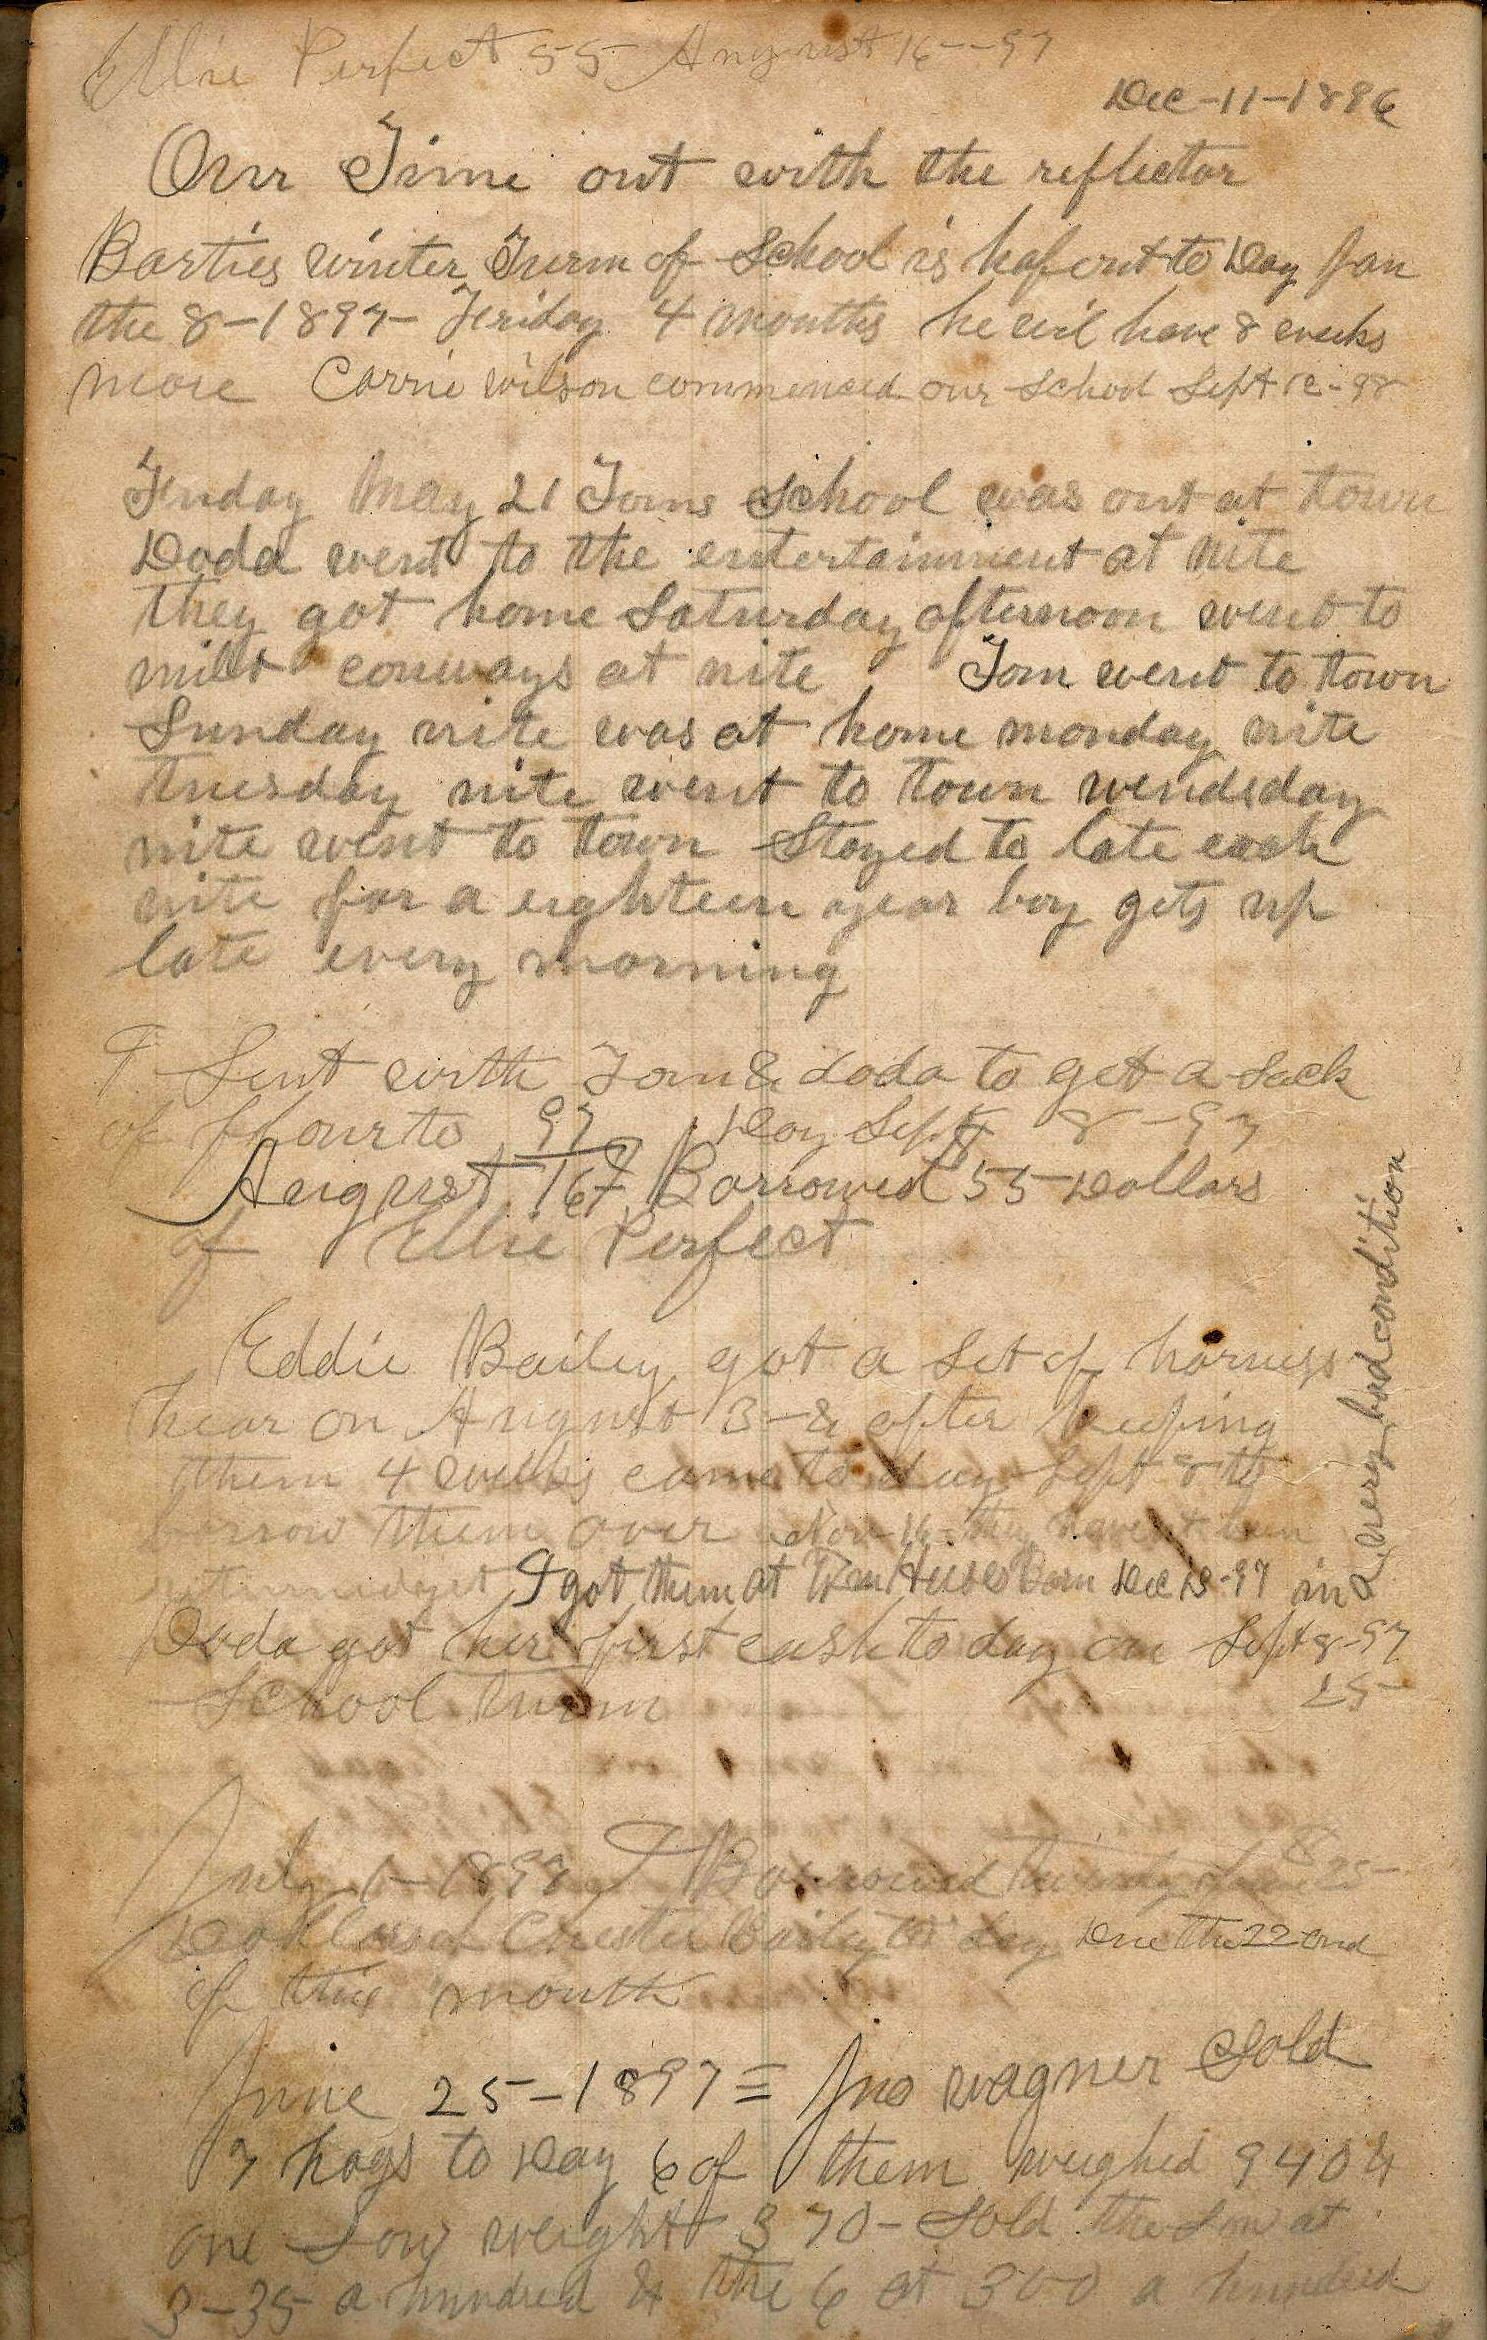 Ellie Perfect 55 August 16--97
Dec-11-1896
Our Time out with the reflector
Barties winter Turm of School is haf out to Day Jan
the 8-1897- Feriday 4 months he wil have 8 weeks
more Carrie wilson commenced our School Sept 12-98
Friday May 21 Toms School was out at town
Doda went to the entertainment at nite
they got home Saturday afternoon went to
milt conways at nite Tom went to town
Sunday nite was at home monday nite
tuesday nite went to town wendsday
nite went to town Stayed to late each
nite for a eighteen year boy gets up
late every morning
I Sent with Tom & doda to get a Sack
of flour to Day Sept 8-97
97
August 16 Borrowed 55 Dollars
of Ellie Perfect
Eddie Bailey got a Set of harness
hear on August 3-& after keeping
them 4 weeks came to day Sept 8 to
borrow them over Nov 16 they havent been
returned yet I got them at Barn Dec 13-97 in
a very bad condition
Doda got her first cash to day on Sept 8-97
School Turm 25-
July 1-1898 I Borrowed Twenty 25-
Dollars of Chester Bailey to day Due the 22 ond
of this month
June 25-1897= Jno wagner Sold
7 hogs to Day 6 of them weighed 940 &
one Sow weight 370- Sold the Sow at
3-35 a hundred & the 6 at 300 a hundred